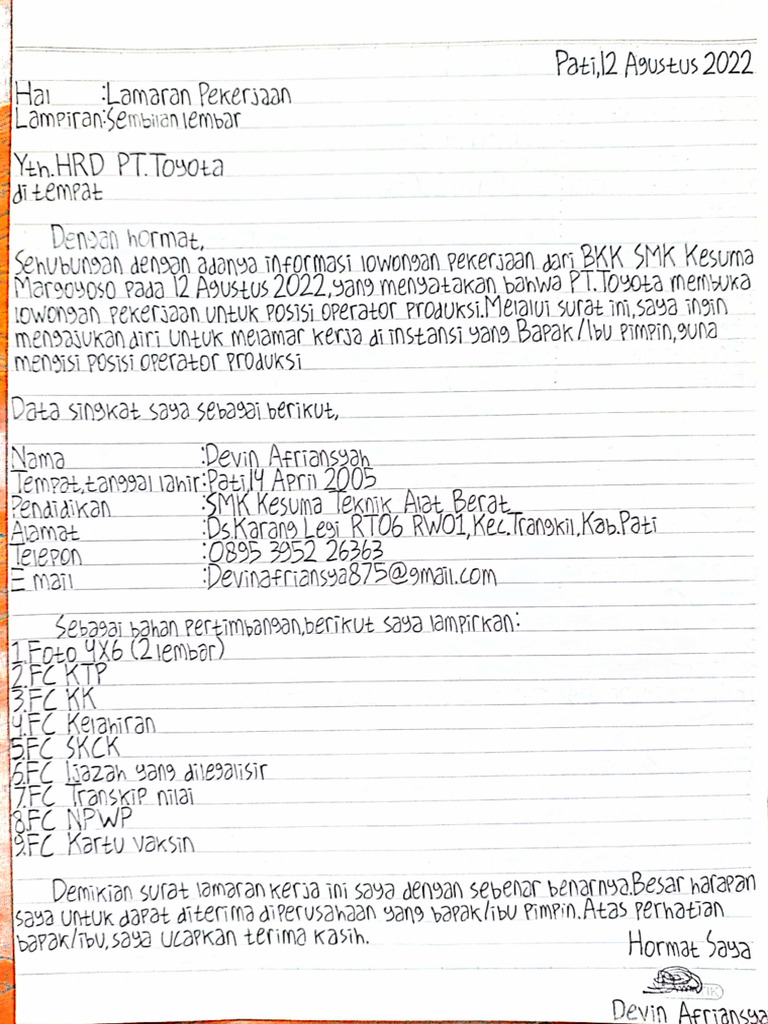 Pati,12 Agustus 2022
Hal :Lamaran Pekerjaan
Lampiran:Sembilan lembar
Yth.HRD PT.Toyota
di tempat
Dengan hormat,
Sehubungan dengan adanya informasi lowongan pekerjaan dari BKK SMK Kesuma
Margoyoso pada 12 Agustus 2022,yang menyatakan bahwa PT.Toyota membuka
lowongan pekerjaan untuk posisi operator produksi.Melalui surat ini,saya ingin
mengajukan diri untuk melamar kerja di instansi yang Bapak/Ibu pimpin,guna
mengisi posisi operator produksi
Data singkat saya sebagai berikut,
Nama :Devin Afriansyah
Tempat,tanggal lahir:Pati,14 April 2005
Pendidikan :SMK Kesuma Teknik Alat Berat
Alamat :Ds.Karang Legi RT06 RW01,Kec.Trangkil,Kab.Pati
Telepon :0895 3952 26363
E mail :Devinafriansya875@gmail.com
Sebagai bahan pertimbangan,berikut saya lampirkan:
1.Foto 4X6 (2 lembar)
2.FC KTP
3.FC KK
4.FC Kelahiran
5.FC SKCK
6.FC Ijazah yang dilegalisir
7.FC Transkip nilai
8.FC NPWP
9.FC Kartu vaksin
Demikian surat lamaran kerja ini saya dengan sebenar benarnya.Besar harapan
saya untuk dapat diterima diperusahaan yang bapak/ibu pimpin.Atas perhatian
bapak/ibu,saya ucapkan terima kasih.
Hormat Saya
Devin Afriansya